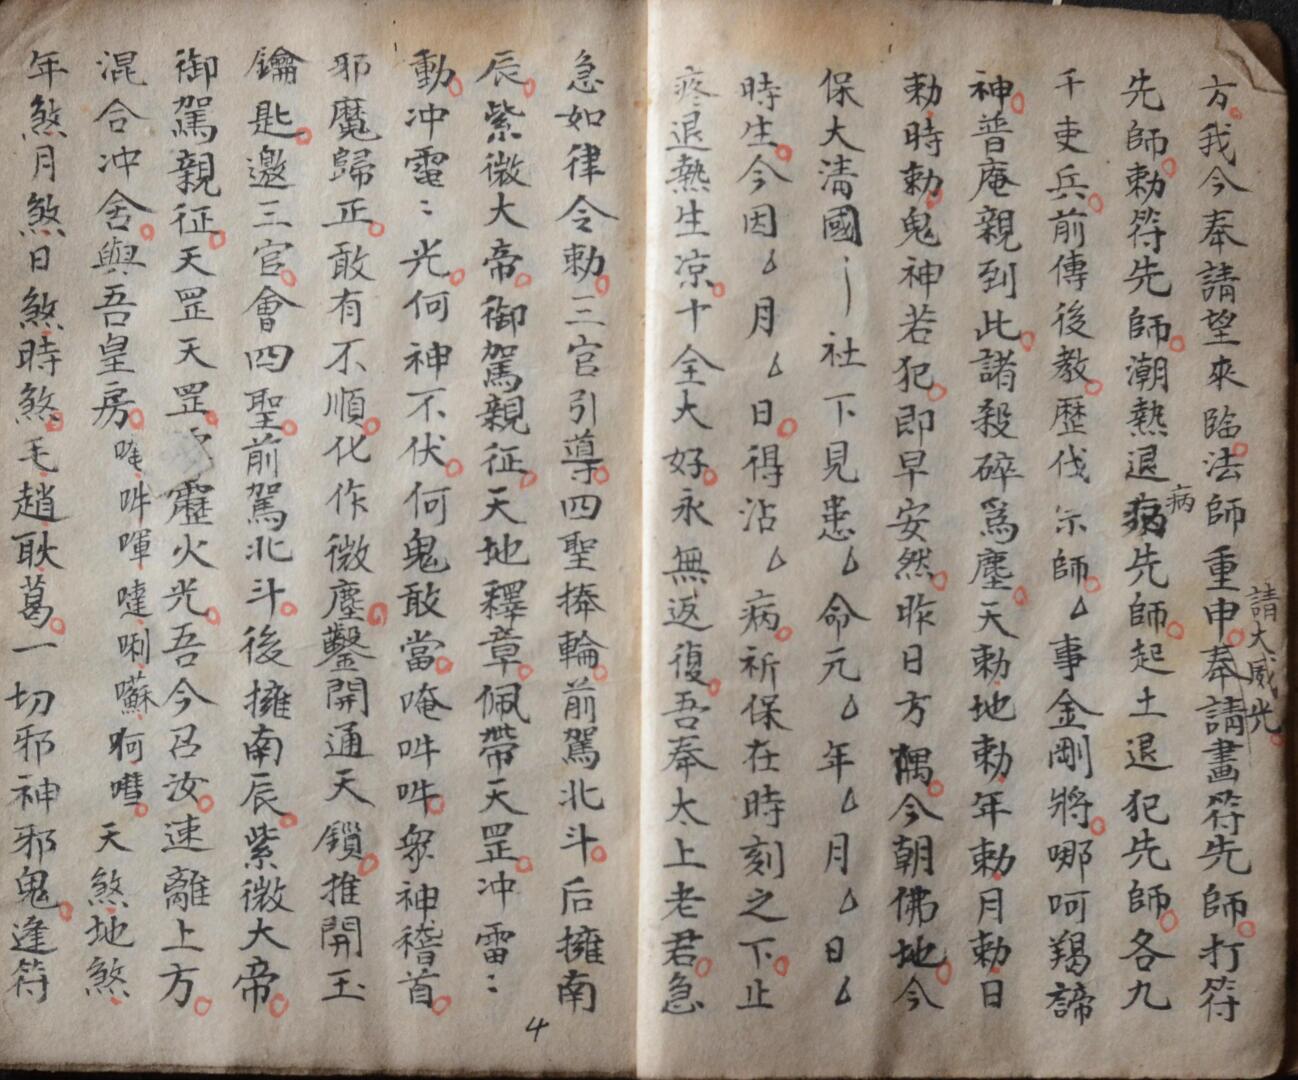 方。我今奉請望來臨。法師重申。奉請畫符先師。打符
請大威光。
先師。勅符先師。潮熱退病先師。起土退犯先師。各九
病
千吏兵。前傳後教。歷伐示師。厶事金剛將。哪呵羯諦
神。普庵親到此。諸殺碎爲塵。天勅地勅年勅月勅日
勅時勅。鬼神若犯。即早安然。昨日方隅。今朝佛地。今
保大清國 社下見患厶命元厶年厶月厶日厶
時生。今因厶月厶日。得沾厶病。祈保在時刻之下。止
疼退熱生凉。十全大好。永無返復。吾奉太上老君。急
急如律令勅。三官引導。四聖捧輪。前駕北斗。后擁南
辰。紫微大帝。御駕親征。天地釋章。佩帶天罡。冲雷:
動。冲電:光。何神不伏。何鬼敢當。唵吽吽。衆神稽首。
邪魔歸正。敢有不順。化作微塵。鑿開通天鎖。推開玉
鑰匙。邀三官。會四聖。前駕北斗。後擁南辰。紫微大帝。
御駕親征。天罡天罡。靂火光。吾今召汝。速離上方。
混合冲舍。與吾皇房。唵吽㖷噠唎囌啊嚾。天煞地煞
年煞月煞日煞時煞。毛趙耿葛。一切邪神邪鬼。逢符
4